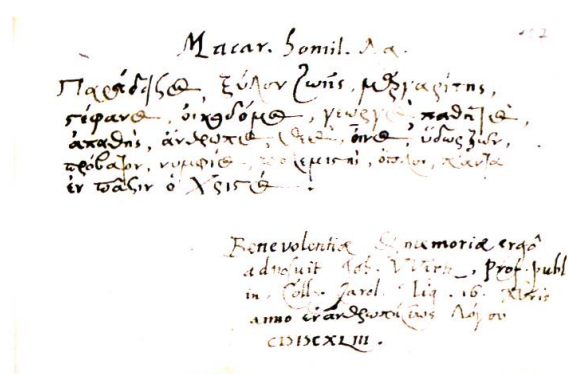 Macar. homil. λα.
Παράδεισε, ξύλον ζωῆς, μαργαρίτης,
στέφανε, οἰκοδόμε, γεωργὲ, παθητὲ,
ἀπαθὴς, ἄνθρωπε, Θεὲ, οἶνε, ὕδωρ ζῶν,
πρόβατον, νυμφίε, πολεμιστὴ, ὅπλον, πάντα
ἐν πᾶσιν ὁ Χριστὲ.
Benevolentiæ & memoriæ ergô
adposuit Joh. VVirtz, Prof. publ
in Coll. Carol. Tig. 16.
anno ἐνανθρωπίσεως Λόγου
CIƆIƆCXLIII.